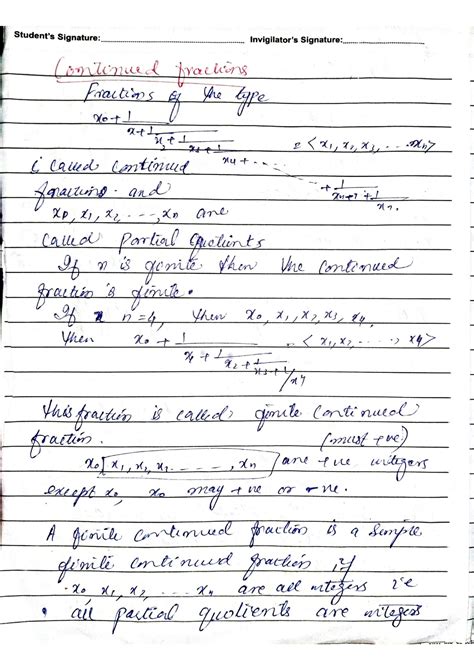 Student's Signature: Invigilator's Signature:
Continued fractions
Fractions of the type
x₀ + 1
x₁ + 1
x₂ + 1
x₃ + 1
x₄ + ...
= < x₁, x₂, x₃, .... xn>
+ 1
xn-1 + 1
xn.
is called continued
fractions. and
x₀, x₁, x₂, ---, xn are
called Partial Quotients
If n is finite then the continued
fraction is finite.
If n=4, then x₀, x₁, x₂, x₃, x₄.
then x₀ + 1 = < x₁, x₂, ....., x₄>
x₁ + 1
x₂ + 1
x₃ + 1/x₄
this fraction is called finite continued
fraction. (must +ve)
x₀ x₁, x₂, x₃. - - - - -, xn are +ve integers
except x₀, x₀ may +ve or -ve.
A finite continued fraction is a Simple
finite continued fraction if
x₀ x₁, x₂, ... xn are all integers i.e
• all partial quotients are integers